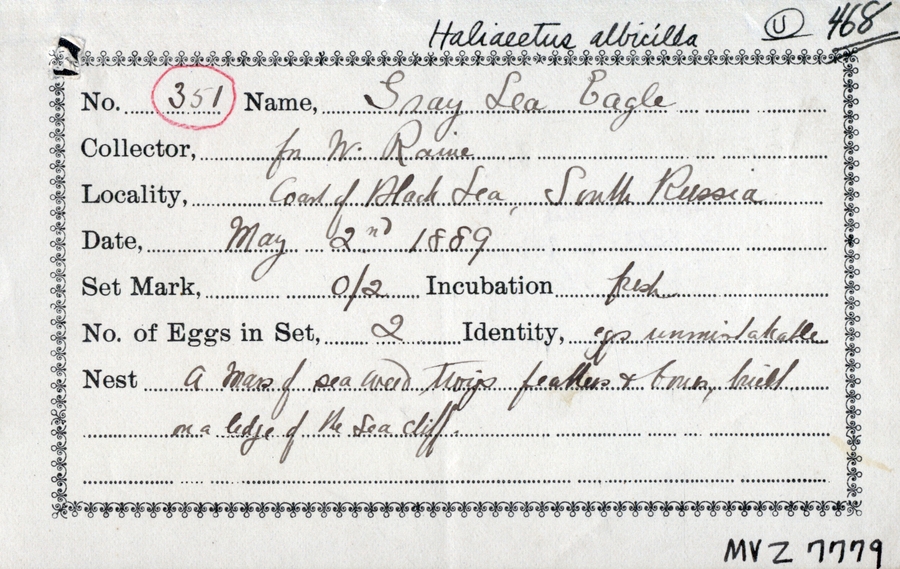 Haliaeetus albicilda U 468
No. 351 Name, Gray Sea Eagle
Collector, for W. Raine
Locality, Coast of Black Sea, South Russia
Date, May 2nd 1889
Set Mark, 0/2 Incubation fresh
No. of Eggs in Set, 2 Identity, eggs unmistakable
Nest A Mass of sea weed twigs feathers & bones, built
on a ledge of the Sea cliff.
MVZ 7779